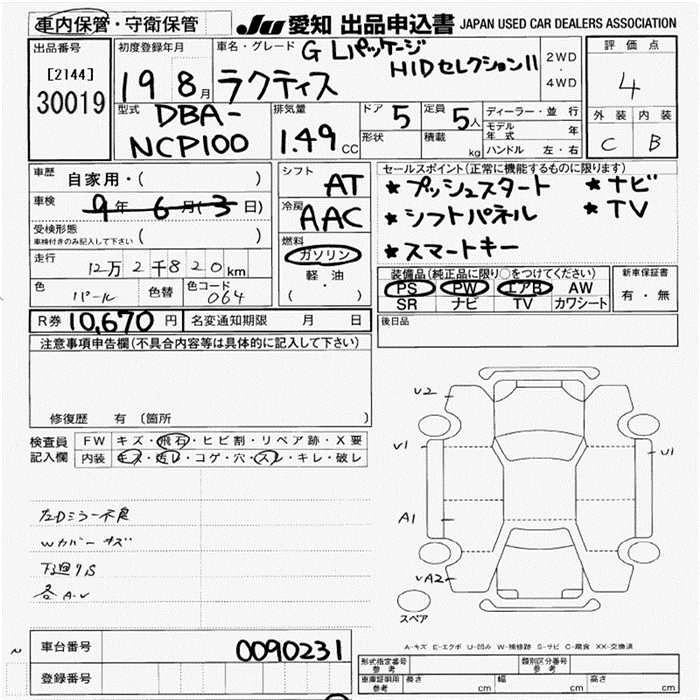 車内保管・守衛保管
JU 愛知 出品申込書 JAPAN USED CAR DEALERS ASSOCIATION
出品番号
[2144]
30019
初度登録年月
19 8月
車名・グレード G Lパッケージ
ラクティス HIDセレクションII
2WD
・
4WD
評価点
4
外装 内装
C B
型式 DBA-
NCP100
排気量
1.49 CC
ドア 5
形状
定員 5人
積載 kg
ディーラー・並行
モデル年式 年
ハンドル 左・右
車歴 自家用・( )
車検 9年 6月(3日)
受検形態
車検付きのみ記入して下さい ( )
走行 12万2千820km
色 パール 色替 色コード 064
シフト AT
冷房 AAC
燃料
ガソリン
軽油
( ・ )
セールスポイント(正常に機能するものに限ります)
★プッシュスタート ★ナビ
★シフトパネル ★TV
★スマートキー
装備品(純正品に限り○をつけてください)
PS PW エアB AW
SR ナビ TV カワシート
新車保証書
有・無
R券 10,670円 名変通知期限 月 日
後日品
注意事項申告欄(不具合内容等は具体的に記入して下さい)
修復歴 有 (箇所 )
検査員記入欄
FW キズ・飛石・ヒビ割・リペア跡・X要
内装 キズ・汚レ・コゲ・穴・スレ・キレ・破レ
左Dミラー不良
Wカバーキズ
下廻りS
各A.U
U2
U1
U1
A1
A2
スペア
A-キズ E-エクボ U-凹み W-補修跡 S-サビ C-腐食 XX-交換済
車台番号 0090231
登録番号
形式指定番号 参考
類別区分番号 参考
車庫証明用 参考 長さ cm 幅 cm 高さ cm